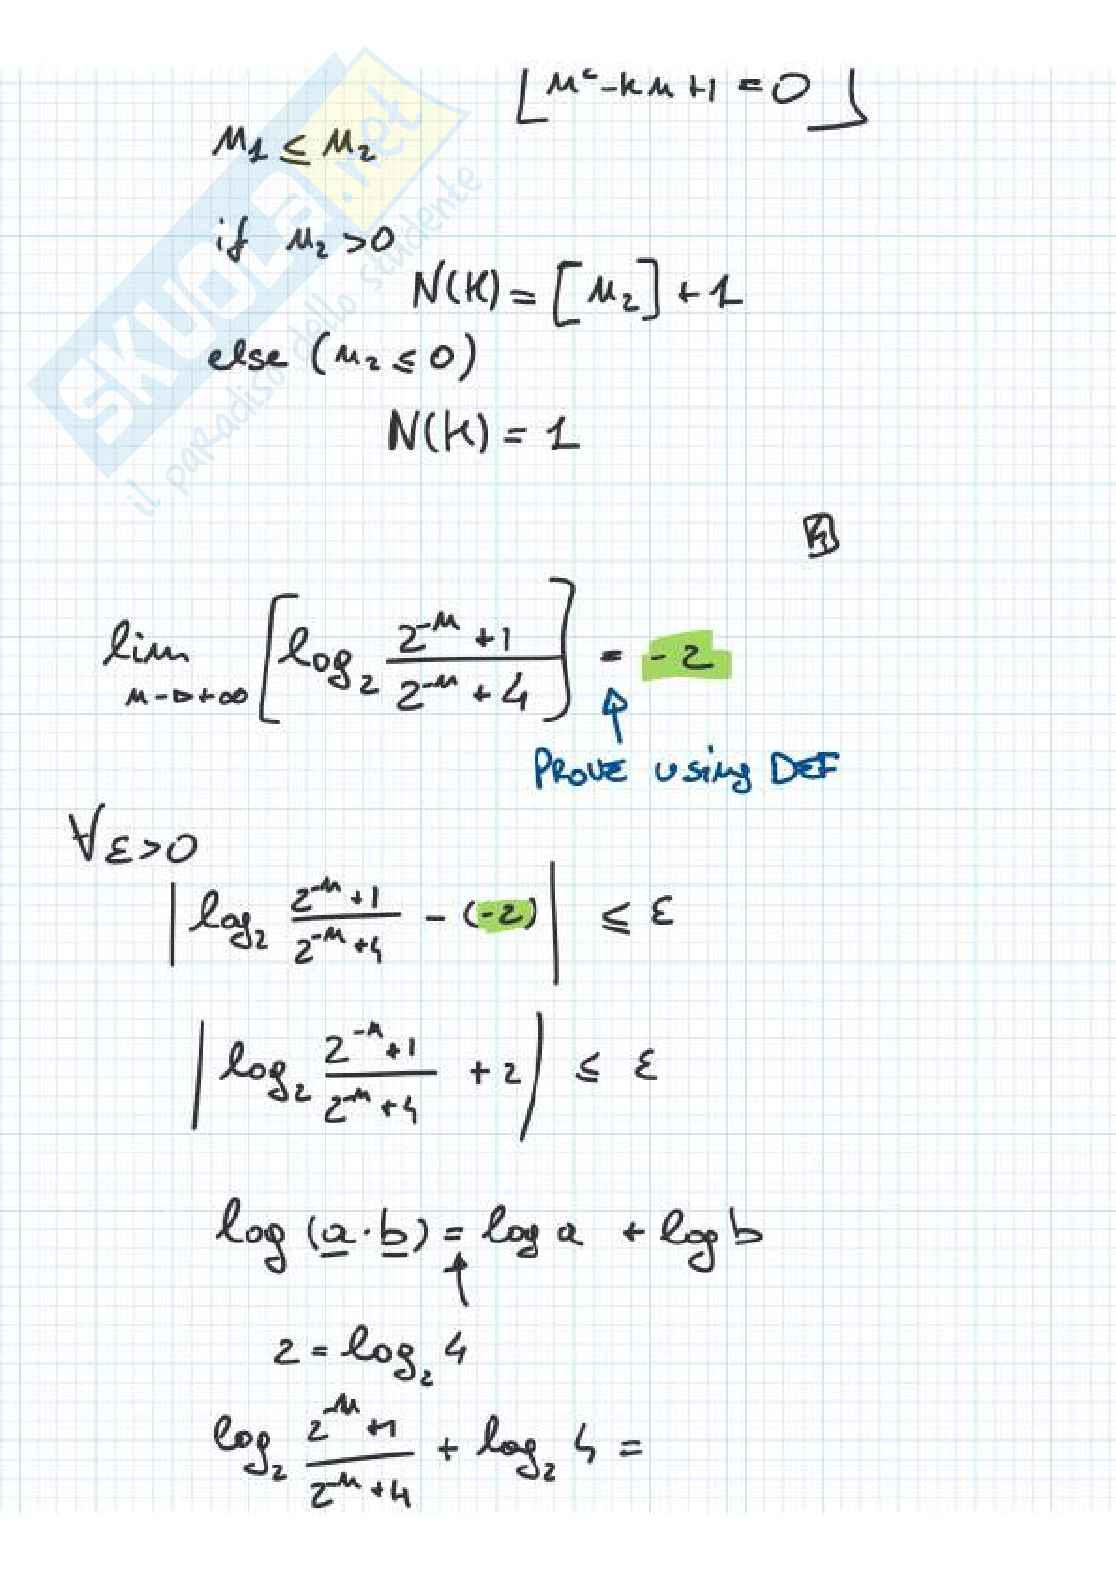 [n² - kn + 1 = 0]
n₁ ≤ n₂
if n₂ > 0
N(K) = [n₂] + 1
else (n₂ ≤ 0)
N(K) = 1
lim n→+∞ [log₂ (2⁻ⁿ + 1)/(2⁻ⁿ + 4)] = -2
PROVE using DEF
∀ε>0
|log₂ (2⁻ⁿ + 1)/(2⁻ⁿ + 4) - (-2)| ≤ ε
|log₂ (2⁻ⁿ + 1)/(2⁻ⁿ + 4) + 2| ≤ ε
log (a · b) = log a + log b
2 = log₂ 4
log₂ (2⁻ⁿ + 1)/(2⁻ⁿ + 4) + log₂ 4 =
SKUOLA.net
il paradiso dello studente